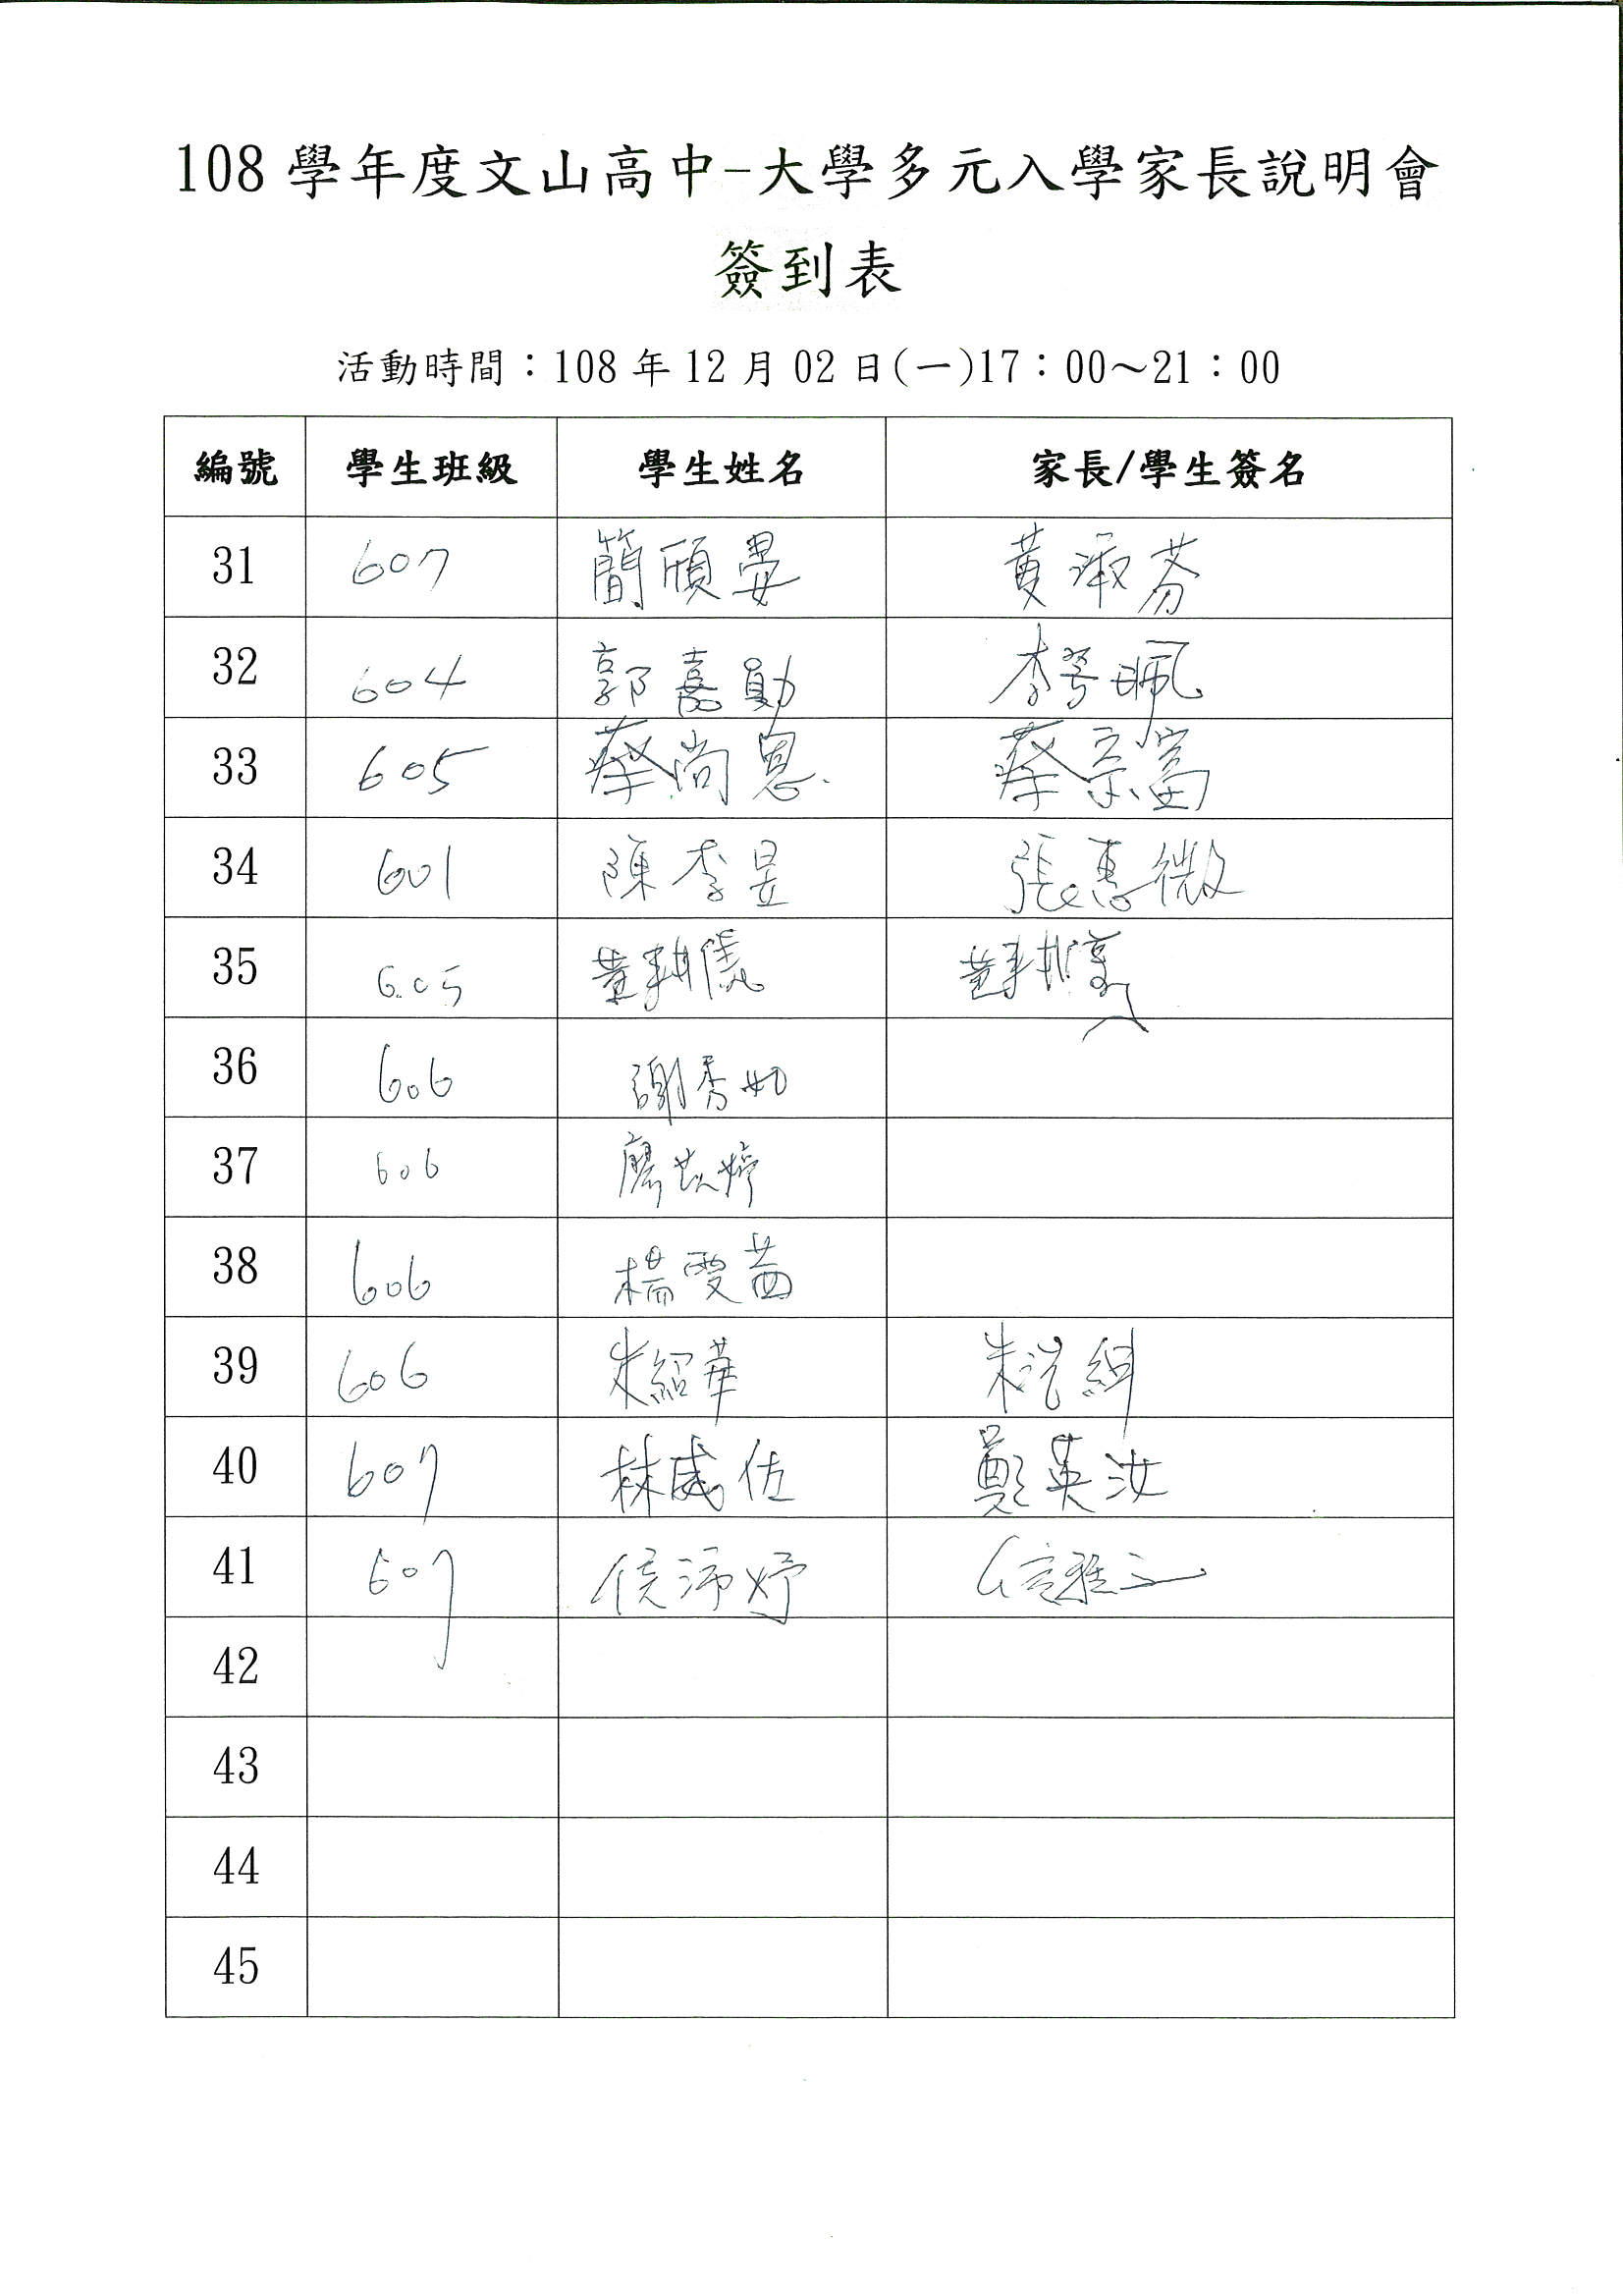 108 學年度文山高中-大學多元入學家長說明會
簽到表
活動時間：108 年 12 月 02 日(一)17：00～21：00
編號 學生班級 學生姓名 家長/學生簽名
31 607 簡頎晏 黃淑芬
32 604 郭嘉勛 李 珮
33 605 蔡尚恩 蔡宗富
34 601 陳李昱 張惠微
35 605 黃耕儀 黃耕
36 606 謝秀如
37 606 廖 婷
38 606 楊雯茜
39 606 朱紹華 朱
40 607 林威佐 鄭英汝
41 607 侯沛妤
42
43
44
45